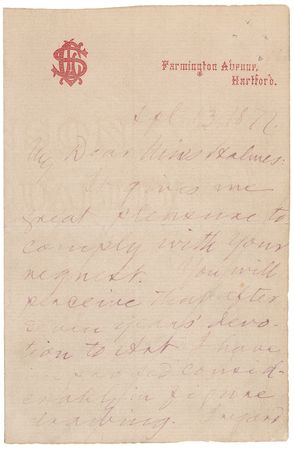 Farmington Avenue,
Hartford.
My Dear Miss Holmes:
It gives me
great pleasure to
comply with your
request. You will
perceive that after
years' devo-
tion to Art I have
consid-
erably in figure
drawing. I regard